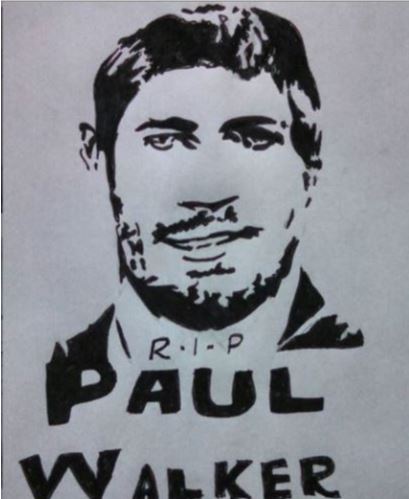 R.I.P
PAUL
WALKER